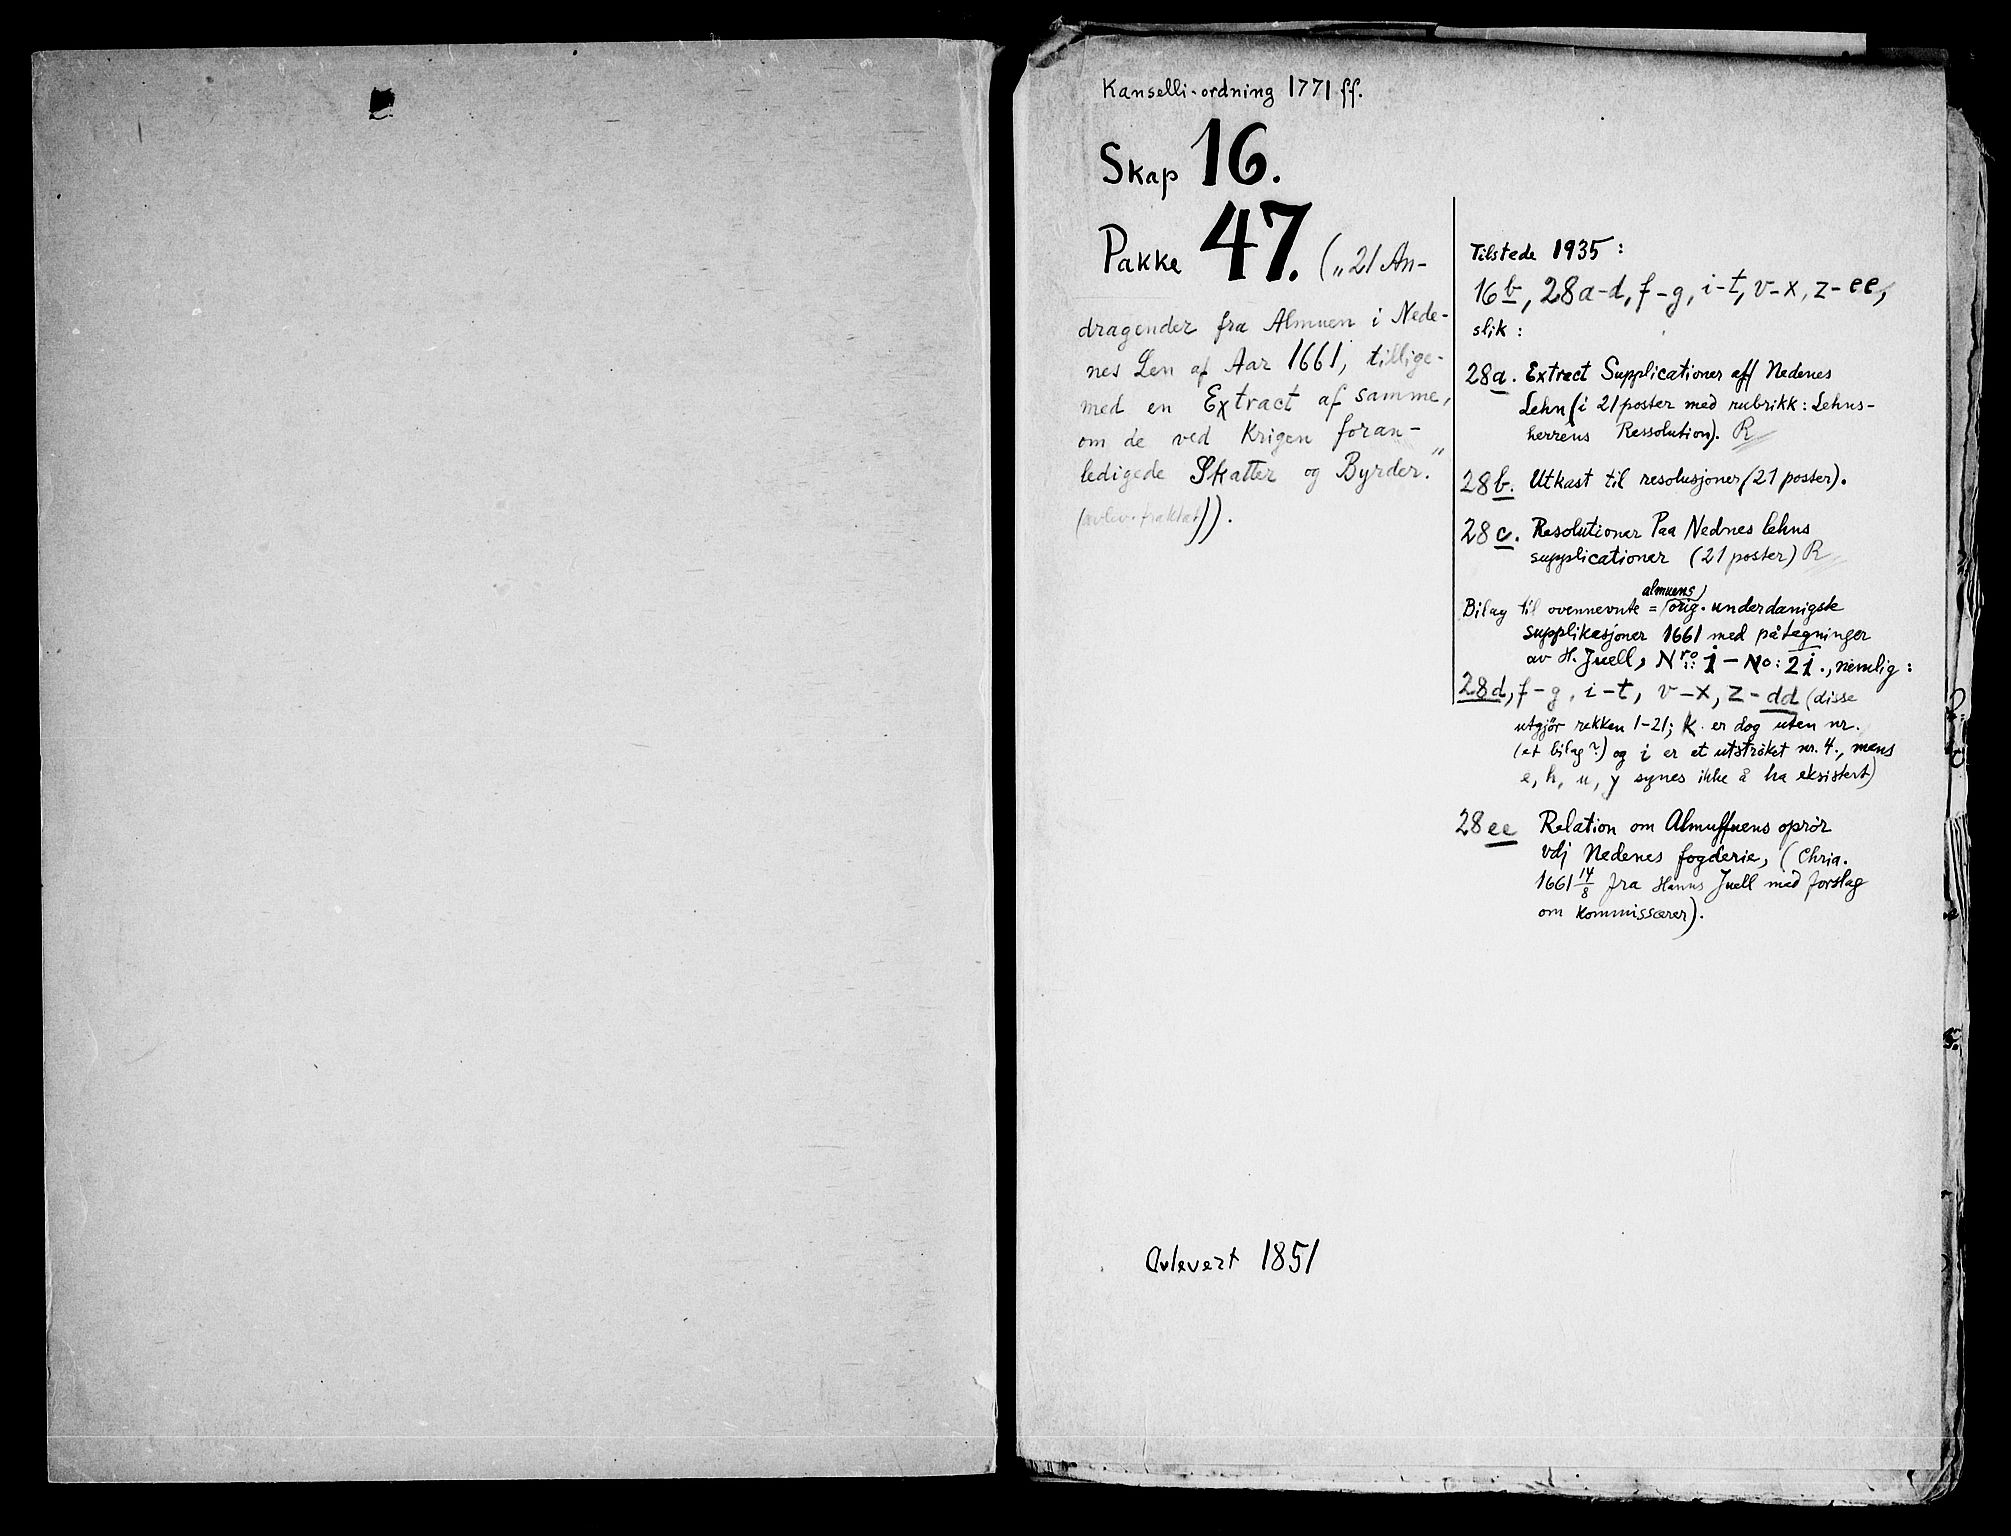 Kanselli-ordning 1771 ff.
Skap 16.
Pakke 47. („21 An-
dragender fra Almuen i Nede-
nes Len af Aar 1661, tillige-
med en Extract af samme,
om de ved Krigen foran-
ledigede Skatter og Byrder."
(avlev. traktat)).
Tilstede 1935:
16b, 28a-d, f-g, i-t, v-x, z-ee,
slik:
28a. Extract Supplicationer aff Nedenes
Lehn (i 21 poster med rubrikk: Lehns-
herrens Ressolution). R
28b. Utkast til resolusjoner (21 poster).
28c. Resolutioner Paa Nednes lehns
supplicationer (21 poster) R
almuens
Bilag til ovennevnte = orig. underdanigste
supplikasjoner 1661 med påtegninger
av H. Juell, Nro: 1 - No: 21., nemlig:
28d, f-g, i-t, v-x, z-dd (disse
utgjør rekken 1-21; k. er dog uten nr.
(et bilag?) og i er et utstrøket nr. 4., mens
e, h, u, y synes ikke å ha eksistert)
28ee Relation om Almuffuens oprör
vdj Nedenes fogderie, (Chria.
1661 14/8 fra Hanns Juell med forslag
om kommissærer).
Avlevert 1851